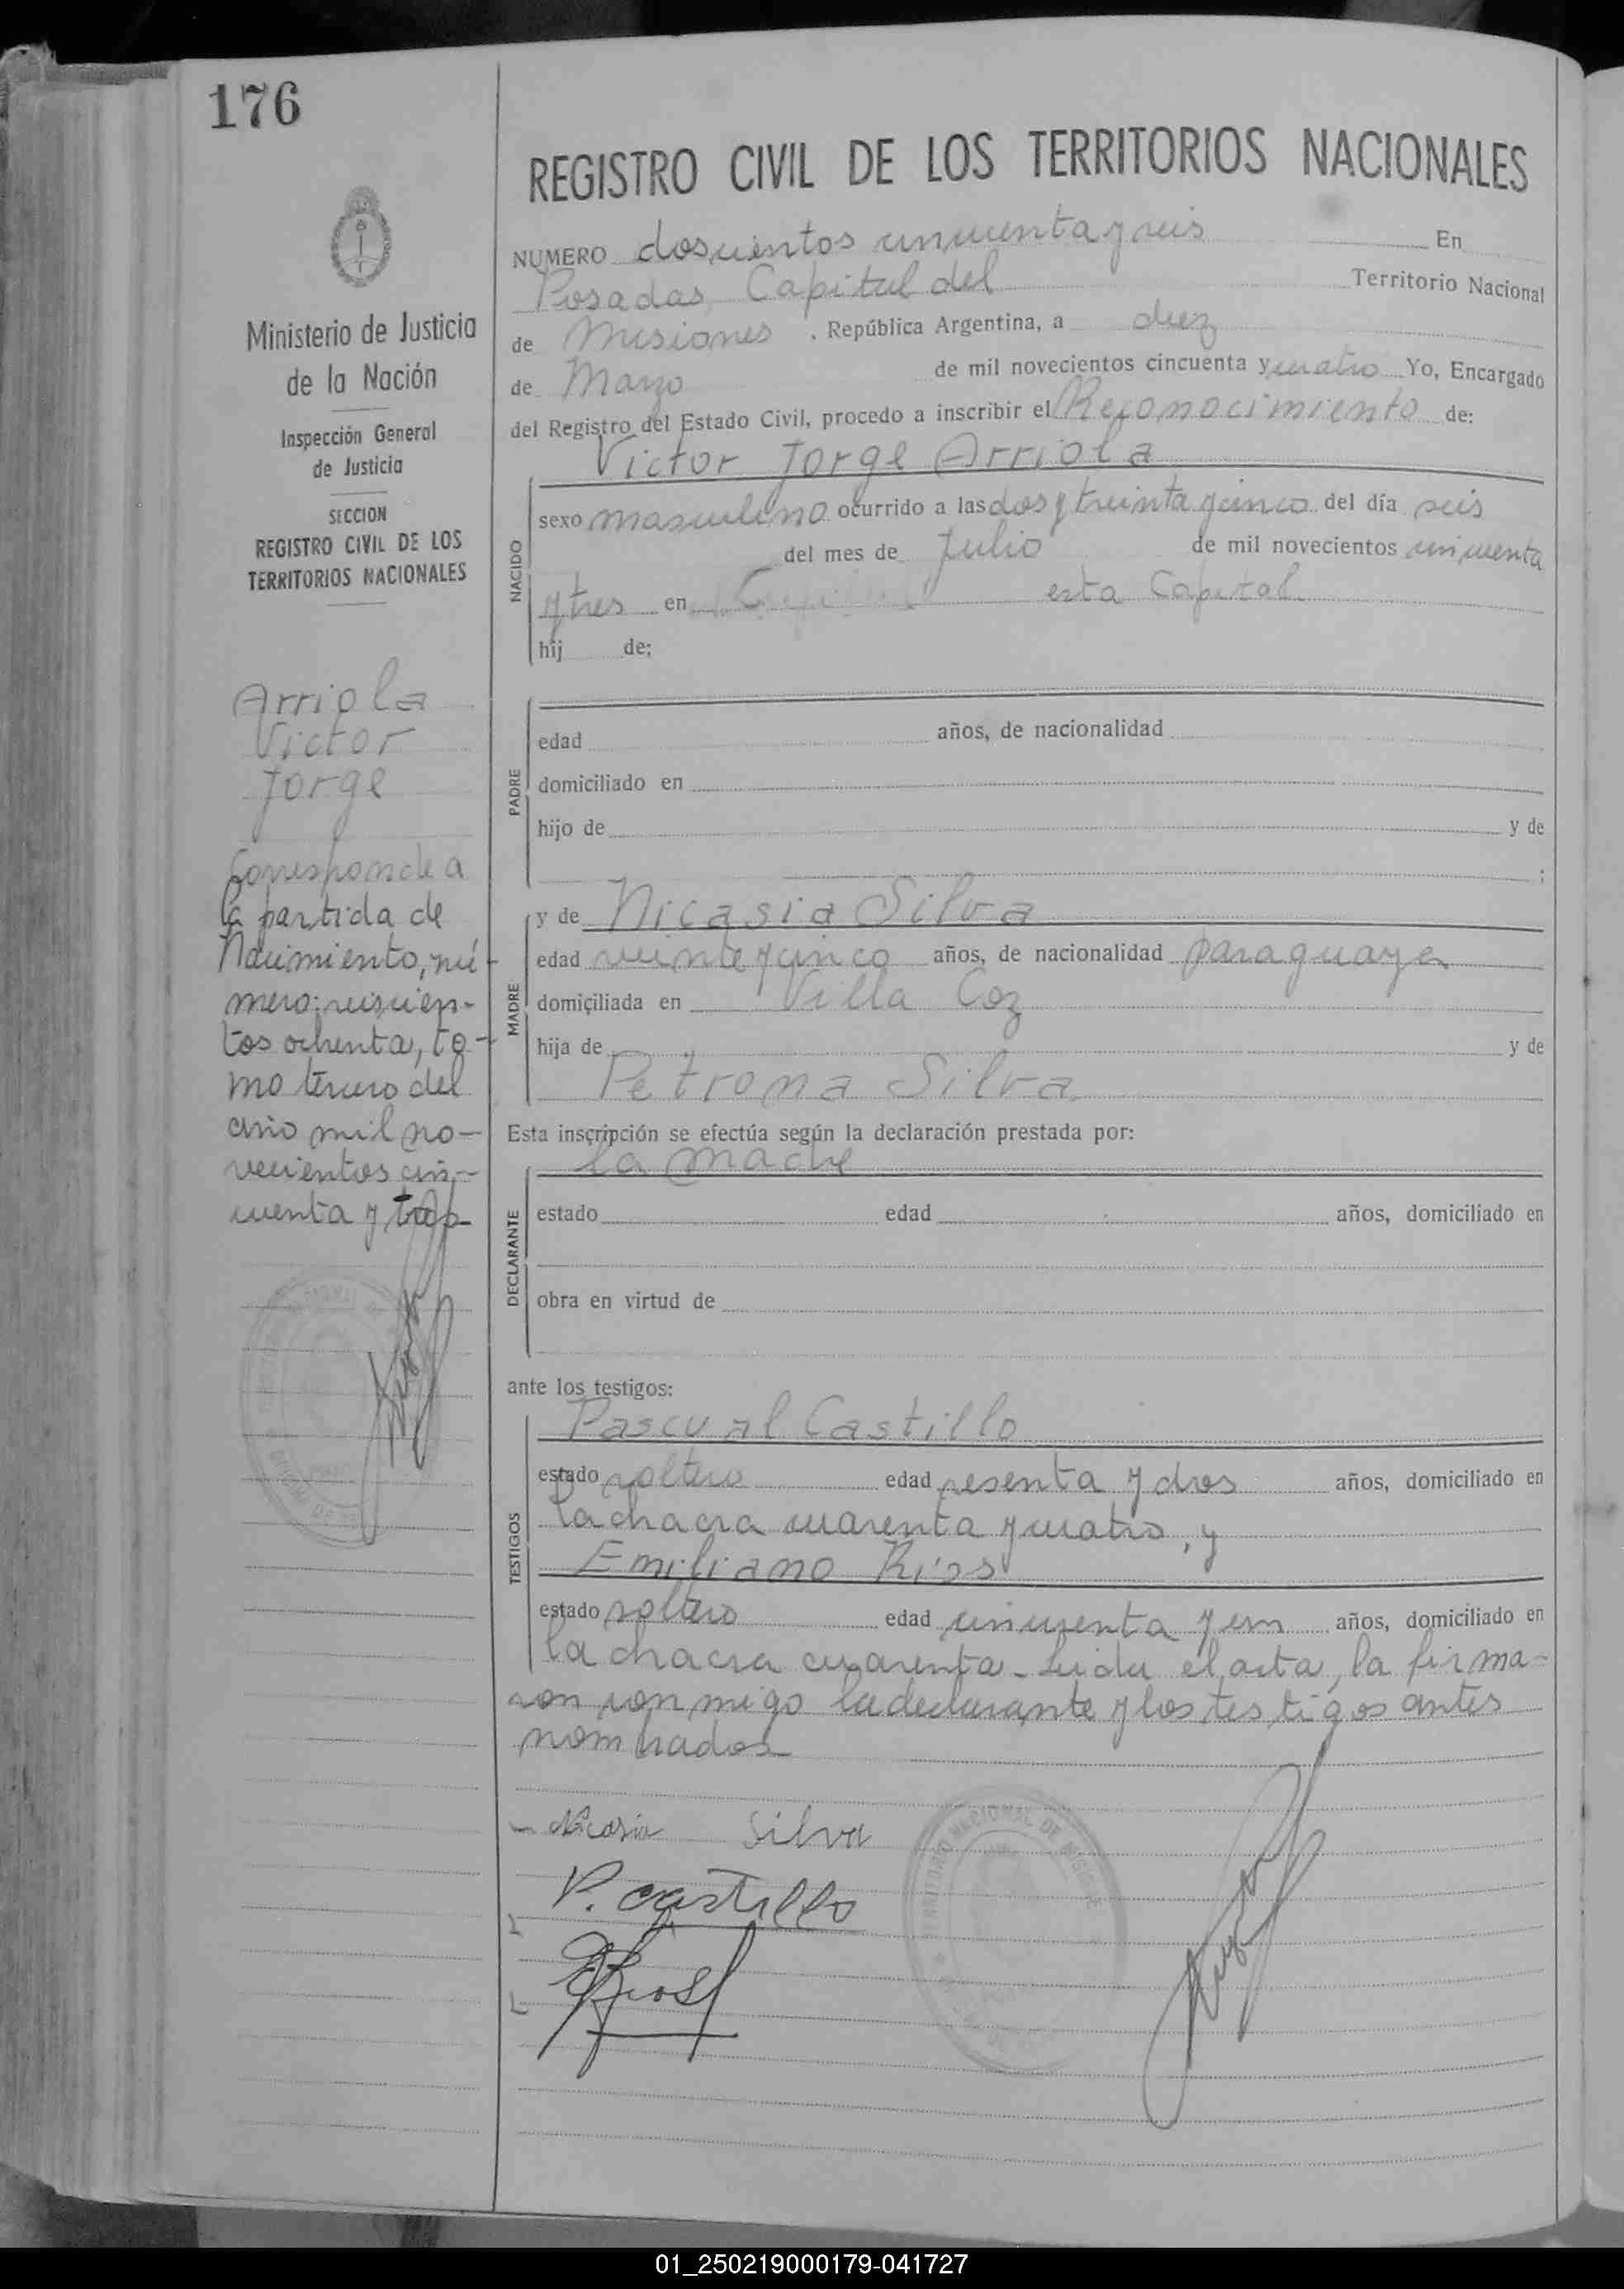 176
Ministerio de Justicia
de la Nación
Inspección General
de Justicia
SECCION
REGISTRO CIVIL DE LOS
TERRITORIOS NACIONALES
Arriola
Victor
Jorge
Corresponde a
la partida de
Nacimiento, nú-
mero: seiscien-
tos ochenta, to-
mo tercero del
año mil no-
vecientos cin-
cuenta y tres
REGISTRO CIVIL DE LOS TERRITORIOS NACIONALES
NUMERO doscientos cincuenta y seis En
Posadas, Capital del Territorio Nacional
de Misiones, República Argentina, a diez
de Marzo de mil novecientos cincuenta y cuatro Yo, Encargado
del Registro del Estado Civil, procedo a inscribir el Reconocimiento de:
Victor Jorge Arriola
NACIDO
sexo masculino ocurrido a las dos y treinta y cinco del día seis
del mes de Julio de mil novecientos cincuenta
y tres en esta Capital.
hij de:
PADRE
edad años, de nacionalidad
domiciliado en
hijo de y de
;
MADRE
y de Nicasia Silva
edad veinte y cinco años, de nacionalidad paraguaya
domiciliada en Villa Coz
hija de y de
Petrona Silva.
Esta inscripción se efectúa según la declaración prestada por:
la madre
DECLARANTE
estado edad años, domiciliado en
obra en virtud de
ante los testigos:
Pascual Castillo
TESTIGOS
estado soltero edad sesenta y dos años, domiciliado en
la chacra cuarenta y cuatro, y
Emiliano Ríos
estado soltero edad cincuenta y un años, domiciliado en
la chacra cuarenta - Leida el acta, la firma-
ron conmigo la declarante y los testigos antes
nombrados
Nicasia Silva
P. Castillo
E Rios
TERRITORIO NACIONAL DE MISIONES
01_250219000179-041727